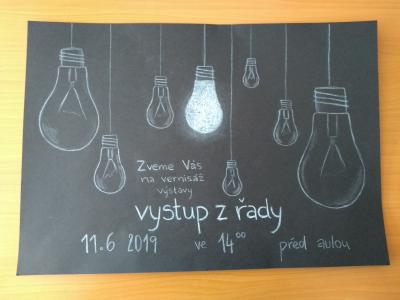 Zveme Vás
na vernisáž
výstavy
vystup z řady
11.6 2019 ve 14⁰⁰ před aulou